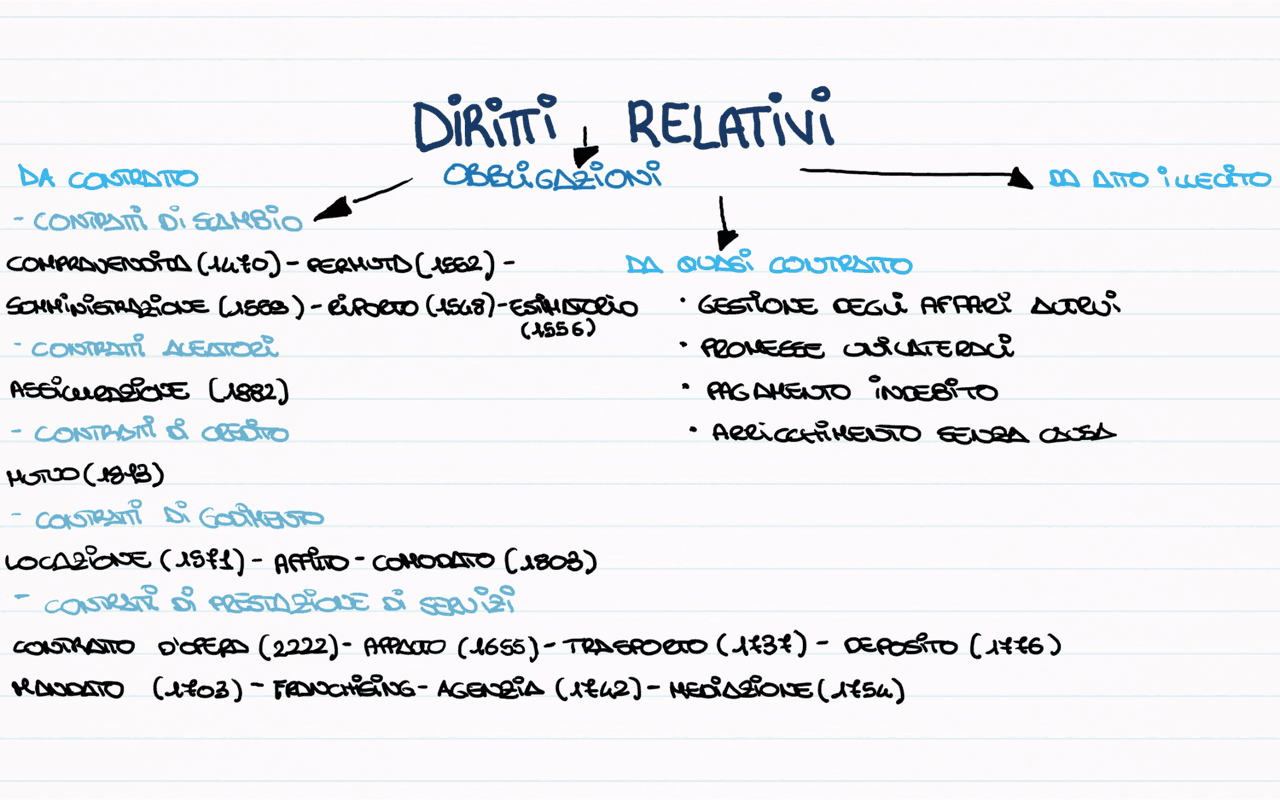 DIRITTI RELATIVI
OBBLIGAZIONI
DA CONTRATTO
- CONTRATTI DI SCAMBIO
COMPRAVENDITA (1470) - PERMUTA (1552) -
SOMMINISTRAZIONE (1559) - RIPORTO (1548) - ESTIMATORIO
(1556)
- CONTRATTI ALEATORI
ASSICURAZIONE (1882)
- CONTRATTI DI CREDITO
MUTUO (1813)
- CONTRATTI DI GODIMENTO
LOCAZIONE (1571) - AFFITTO - COMODATO (1803)
- CONTRATTI DI PRESTAZIONE DI SERVIZI
CONTRATTO D'OPERA (2222) - APPALTO (1655) - TRASPORTO (1737) - DEPOSITO (1776)
MANDATO (1703) - FRANCHISING - AGENZIA (1742) - MEDIAZIONE (1754)
DA QUASI CONTRATTO
• GESTIONE DEGLI AFFARI ALTRUI
• PROMESSE UNILATERALI
• PAGAMENTO INDEBITO
• ARRICCHIMENTO SENZA CAUSA
DA ATTO ILLECITO